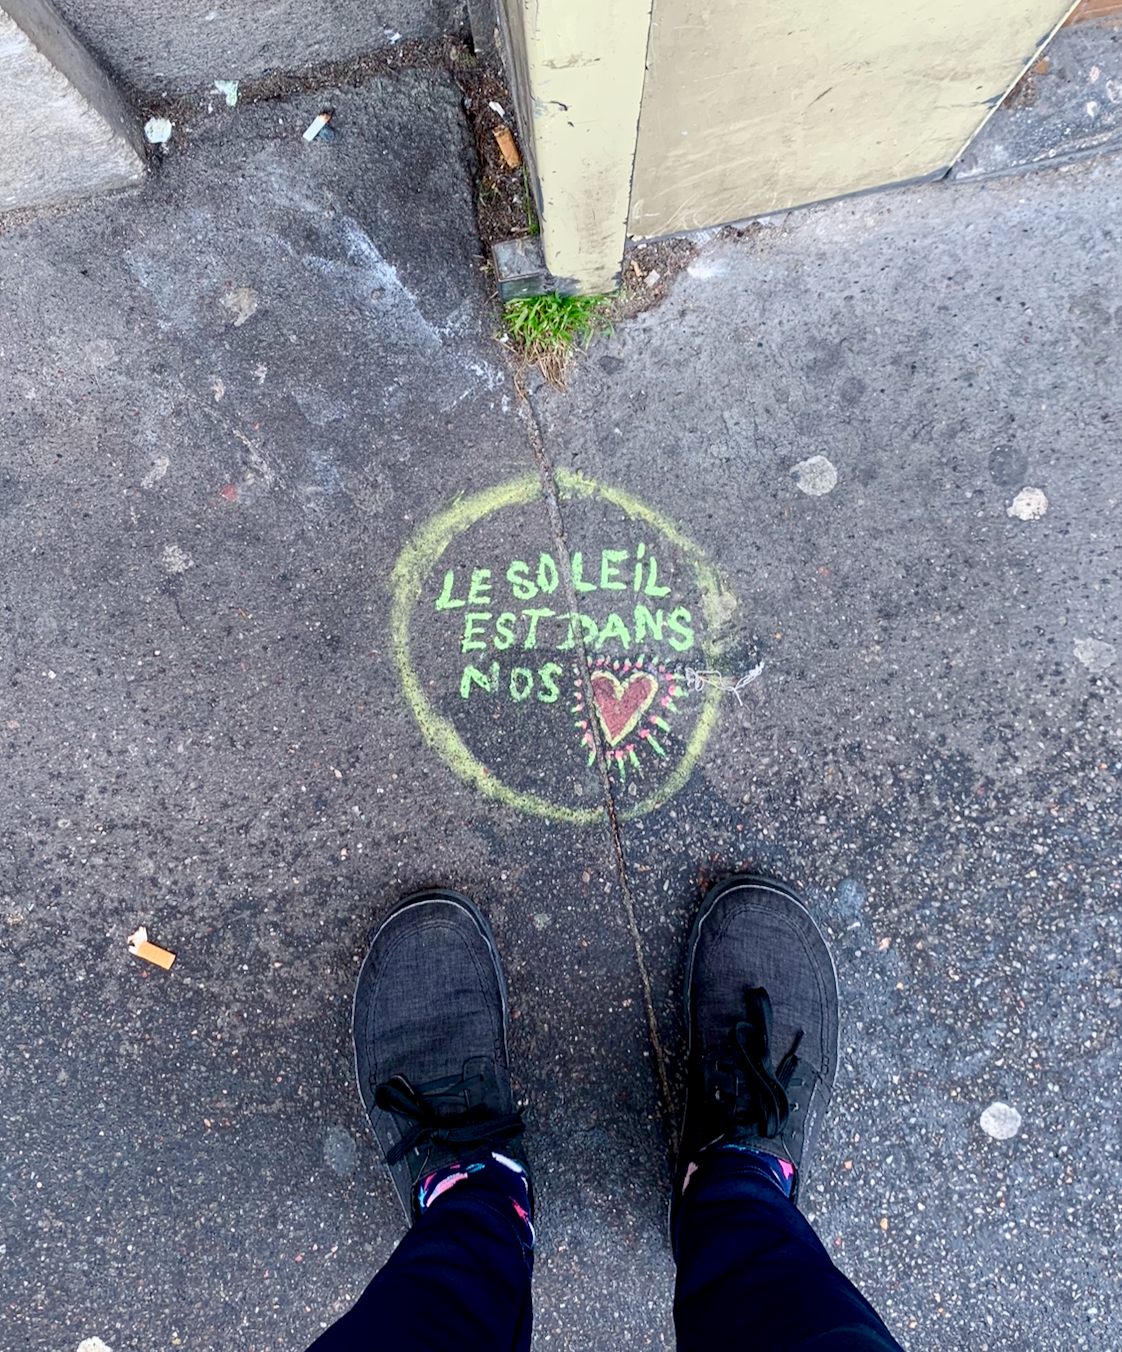 LE SOLEiL
EST DANS
NOS